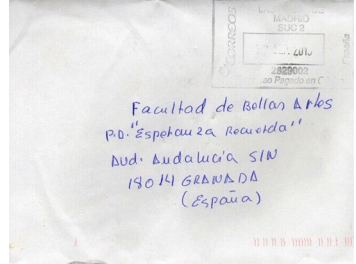 CORREOS
MADRID
SUC 2
2010
2829002
Pagado en
España
Facultad de Bellas Artes
P.D. "Esperanza Recuerda"
Avd. Andalucía S/N
18014 GRANADA
(España)